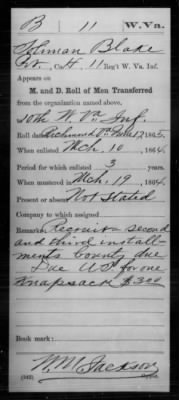 B 11 W. Va.
Blake
Pvt., Co. H, 11 Reg't W. Va. Inf.
Appears on
M. and D. Roll of Men Transferred
from the organization named above.
10th W. Va. Inf.
Roll dated Richmond Va. 17, 1865.
When enlisted Mch. 10, 1864.
Period for which enlisted 3 years.
When mustered in Mch. 19, 1864.
Present or absent Not Stated
Company to which assigned
Remarks: second
and third install-
ments bounty due
Due U.S. for one
knapsack $3.00
Book mark:
W. M. Jackson
Copyist.